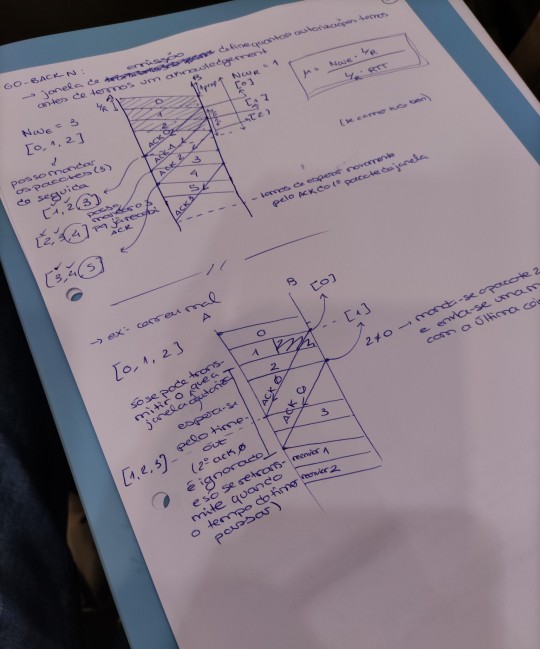 GO-BACK N:
emissão
→ janela de define quantas autorizações temos
antes de termos um acknowledgement
NWE = 3
[0, 1, 2]
posso mandar
os pacotes (s)
de seguida
[1, 2, 3]
posso
mandar o 3
pq já recebi
ACK
[2, 3, 4]
[3, 4, 5]
A
B
L/R
0
1
2
ACK 0
ACK 1
ACK 2
3
4
5
NWR = 1
[0]
[1]
[2]
μ = NWE · L/R
L/R · RTT
temos de esperar novamente
pelo ACK do 1º pacote da janela
→ ex: correu mal
A
B
[0, 1, 2]
só se pode trans-
mitir o que a
janela autoriza
espera-se
pelo time-
out
[1, 2, 3]
(2º ack 0
é ignorado
e só se retrans-
mite quando
o tempo do timeout
passar)
0
1
2
ACK 0
ACK 0
3
reenviar 1
reenviar 2
[0]
[1]
2≠0 → manda-se o pacote 2
e envia-se um
com a última